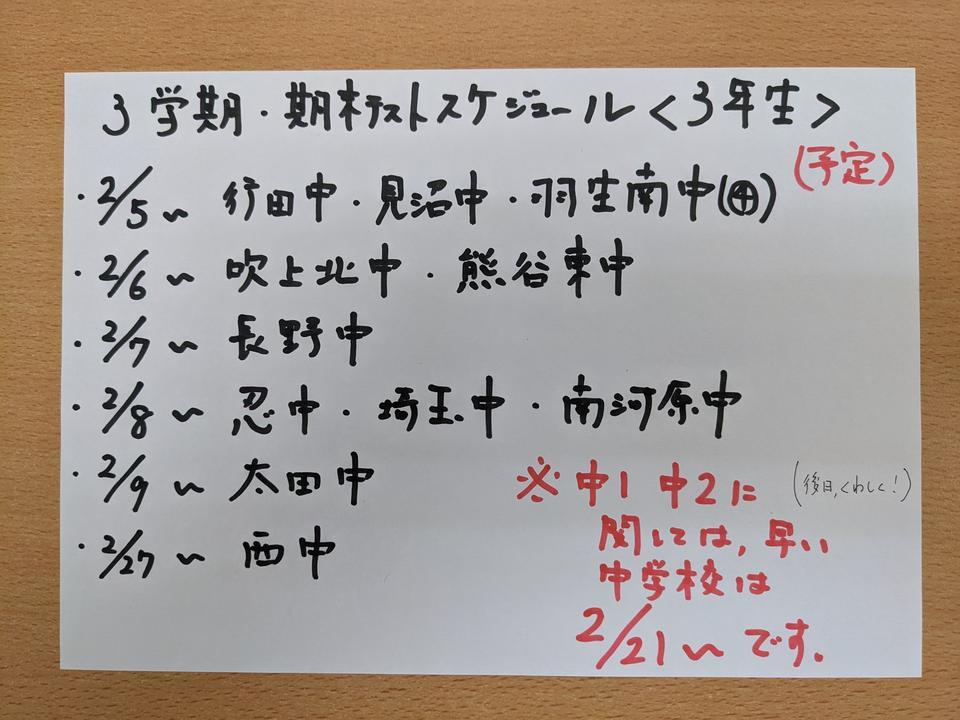 3学期・期末テストスケジュール<3年生>
(予定)
・2/5〜 行田中・見沼中・羽生南中(中)
・2/6〜 吹上北中・熊谷東中
・2/7〜 長野中
・2/8〜 忍中・埼玉中・南河原中
・2/9〜 太田中
・2/27〜 西中
※中1 中2に
(後日,くわしく!)
関しては,早い
中学校は
2/21〜です。